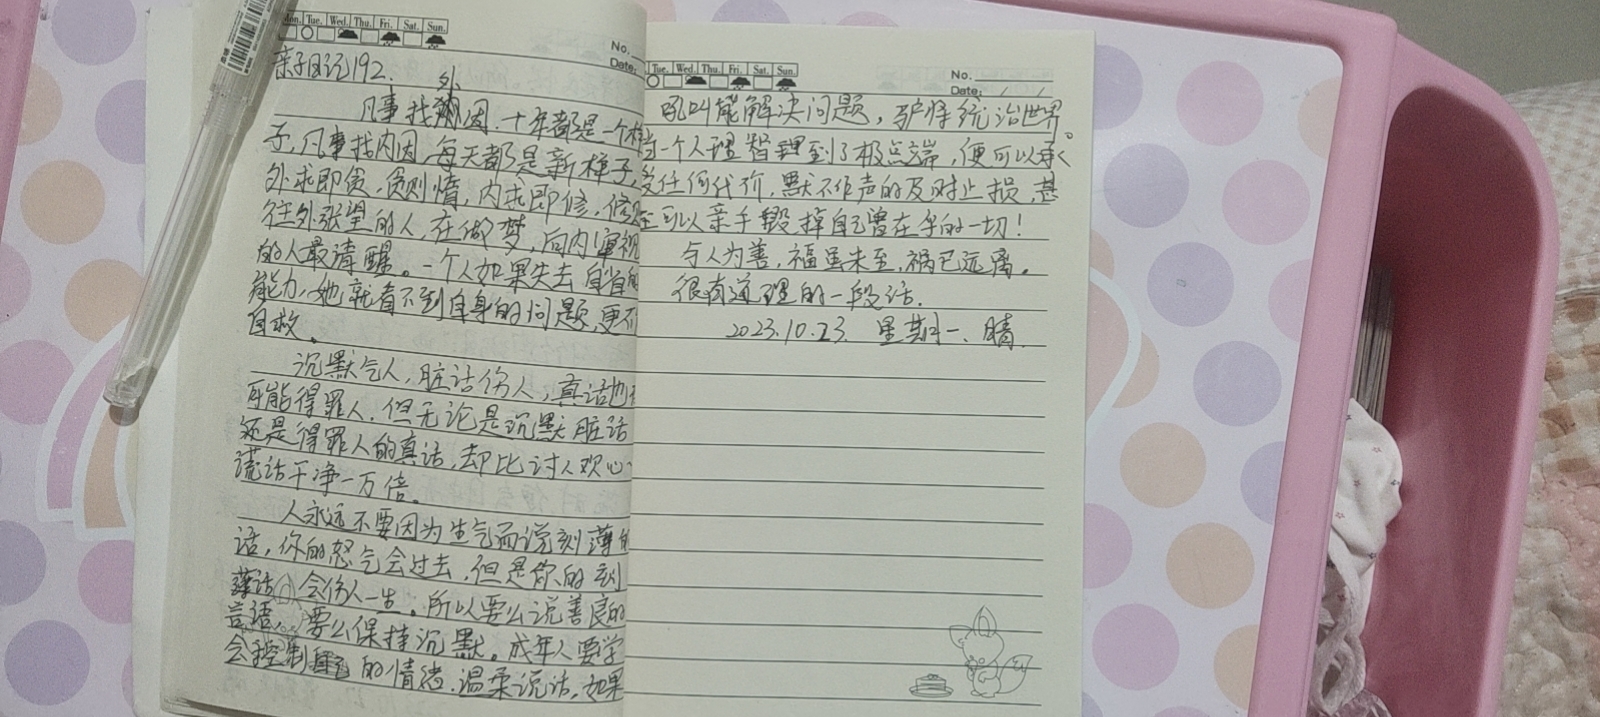 Mon. Tue. Wed. Thu. Fri. Sat. Sun.
No.
Date:
亲子日记192.
外
凡事找因.十年都是一个样
子,凡事找内因,每天都是新样子,
外求即贪,贪则惰,内求即修,修
往外张望的人,在做梦,向内审视
的人最清醒。一个人如果失去自省的
能力,她就看不到自身的问题,更不
自救。
沉默气人,脏话伤人,真话也
可能得罪人.但无论是沉默脏话
还是得罪人的真话,却比讨人欢心
谎话干净一万倍。
人永远不要因为生气而说刻薄的
话,你的怒气会过去,但是你的刻
薄话会伤人一生。所以要么说善良的
言语,要么保持沉默。成年人要学
会控制自己的情绪.温柔说话,如果
Tue. Wed. Thu. Fri. Sat. Sun.
No.
Date: / /
吼叫能解决问题,驴将统治世界。
当一个人理智到了极点端,便可以承
受任何代价,默不作声的及时止损,甚
至可以亲手毁掉自己曾在乎的一切!
与人为善,福虽未至,祸已远离。
很有道理的一段话.
2023.10.23. 星期一、晴.